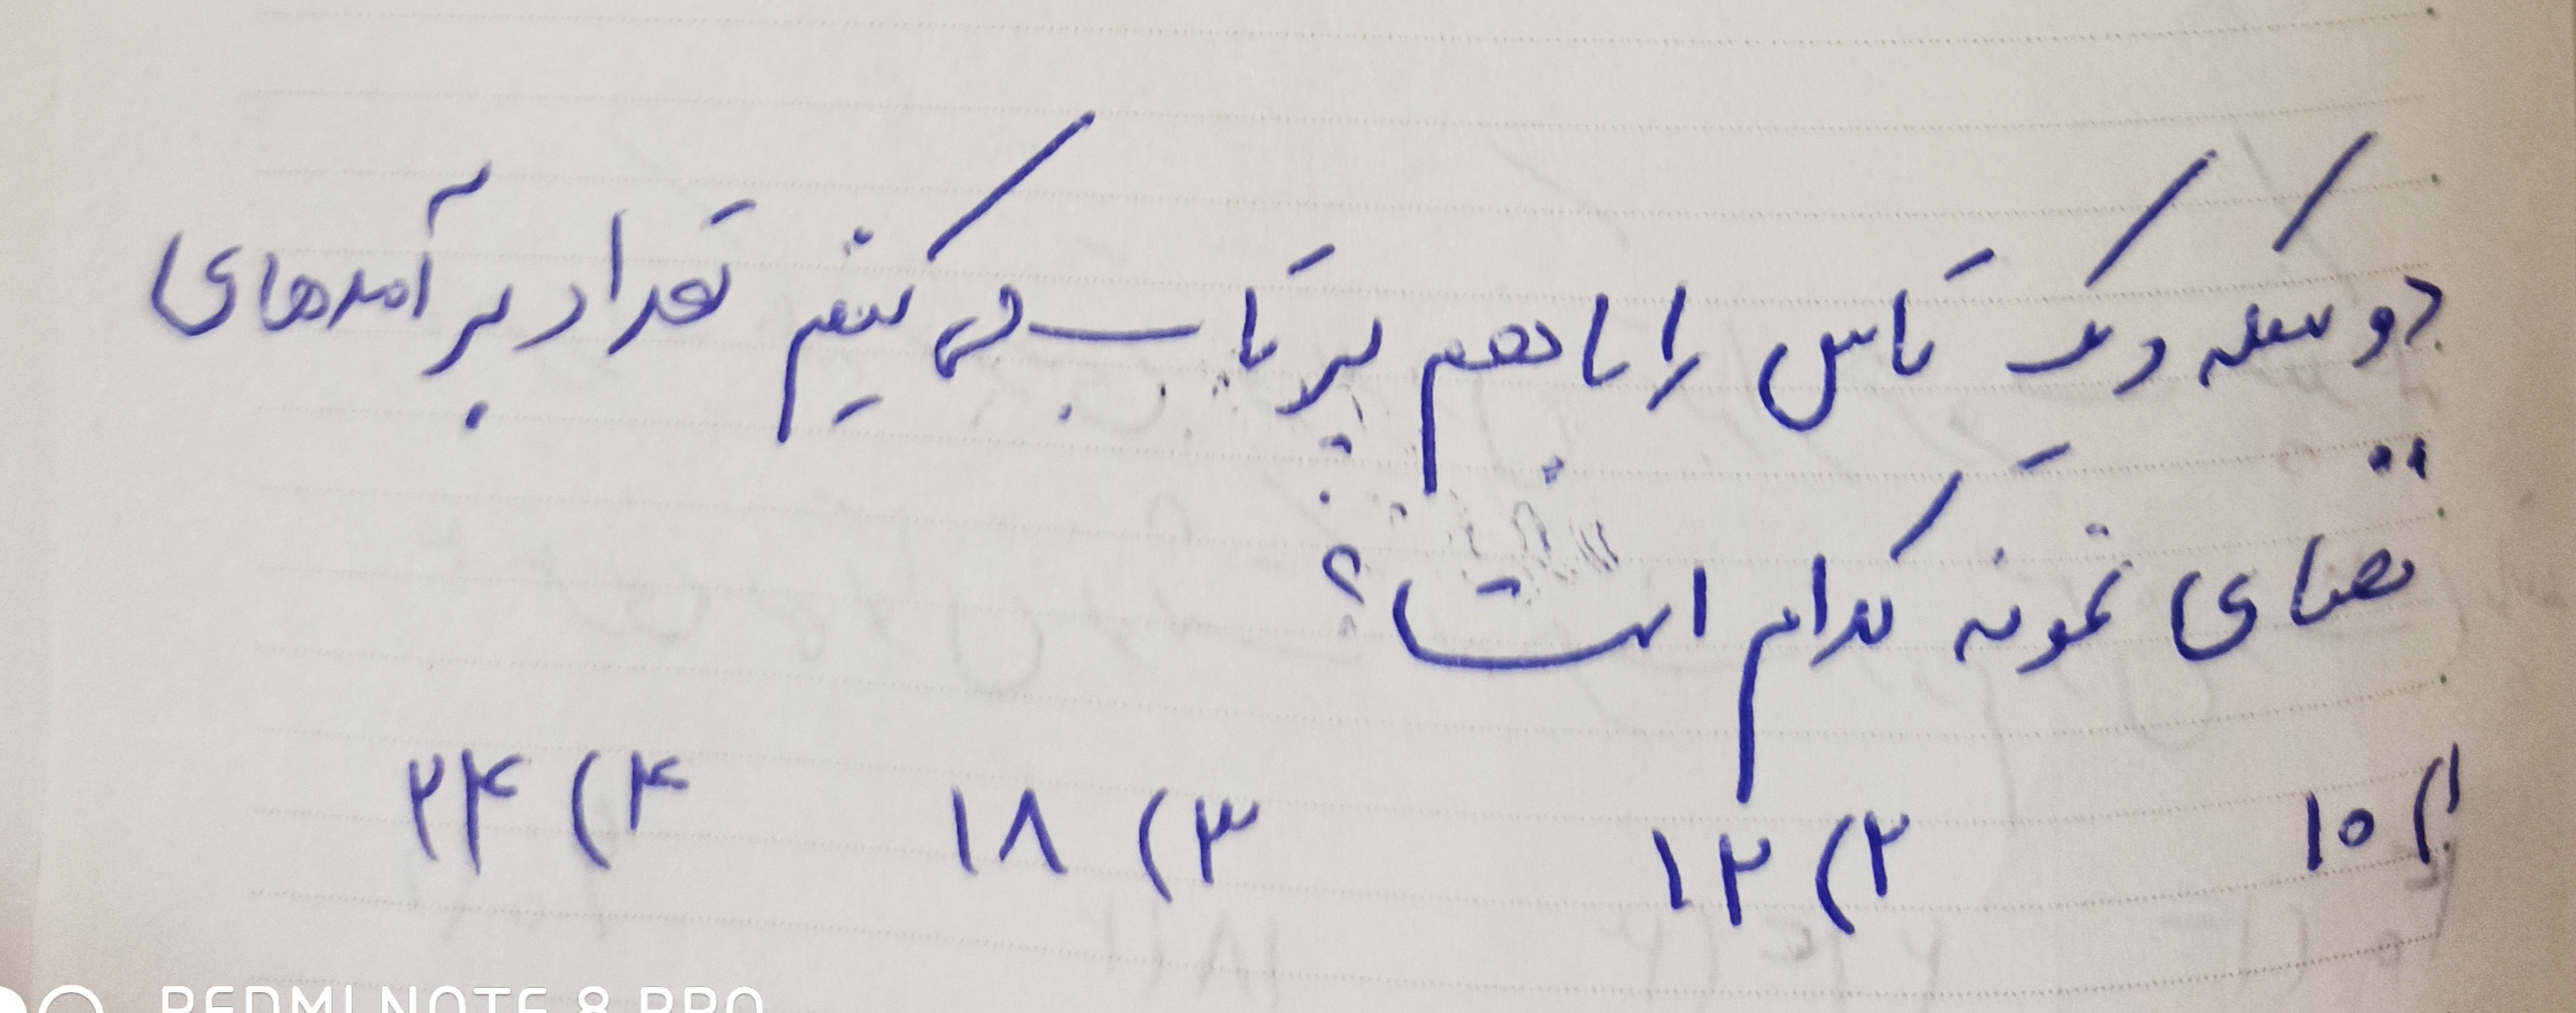 دو سکه و یک تاس را با هم پرتاب می کنیم تعداد برآمدهای
فضای نمونه کدام است؟
۱) ۱۰ ۲) ۱۲ ۳) ۱۸ ۴) ۲۴
REDMI NOTE 8 PRO